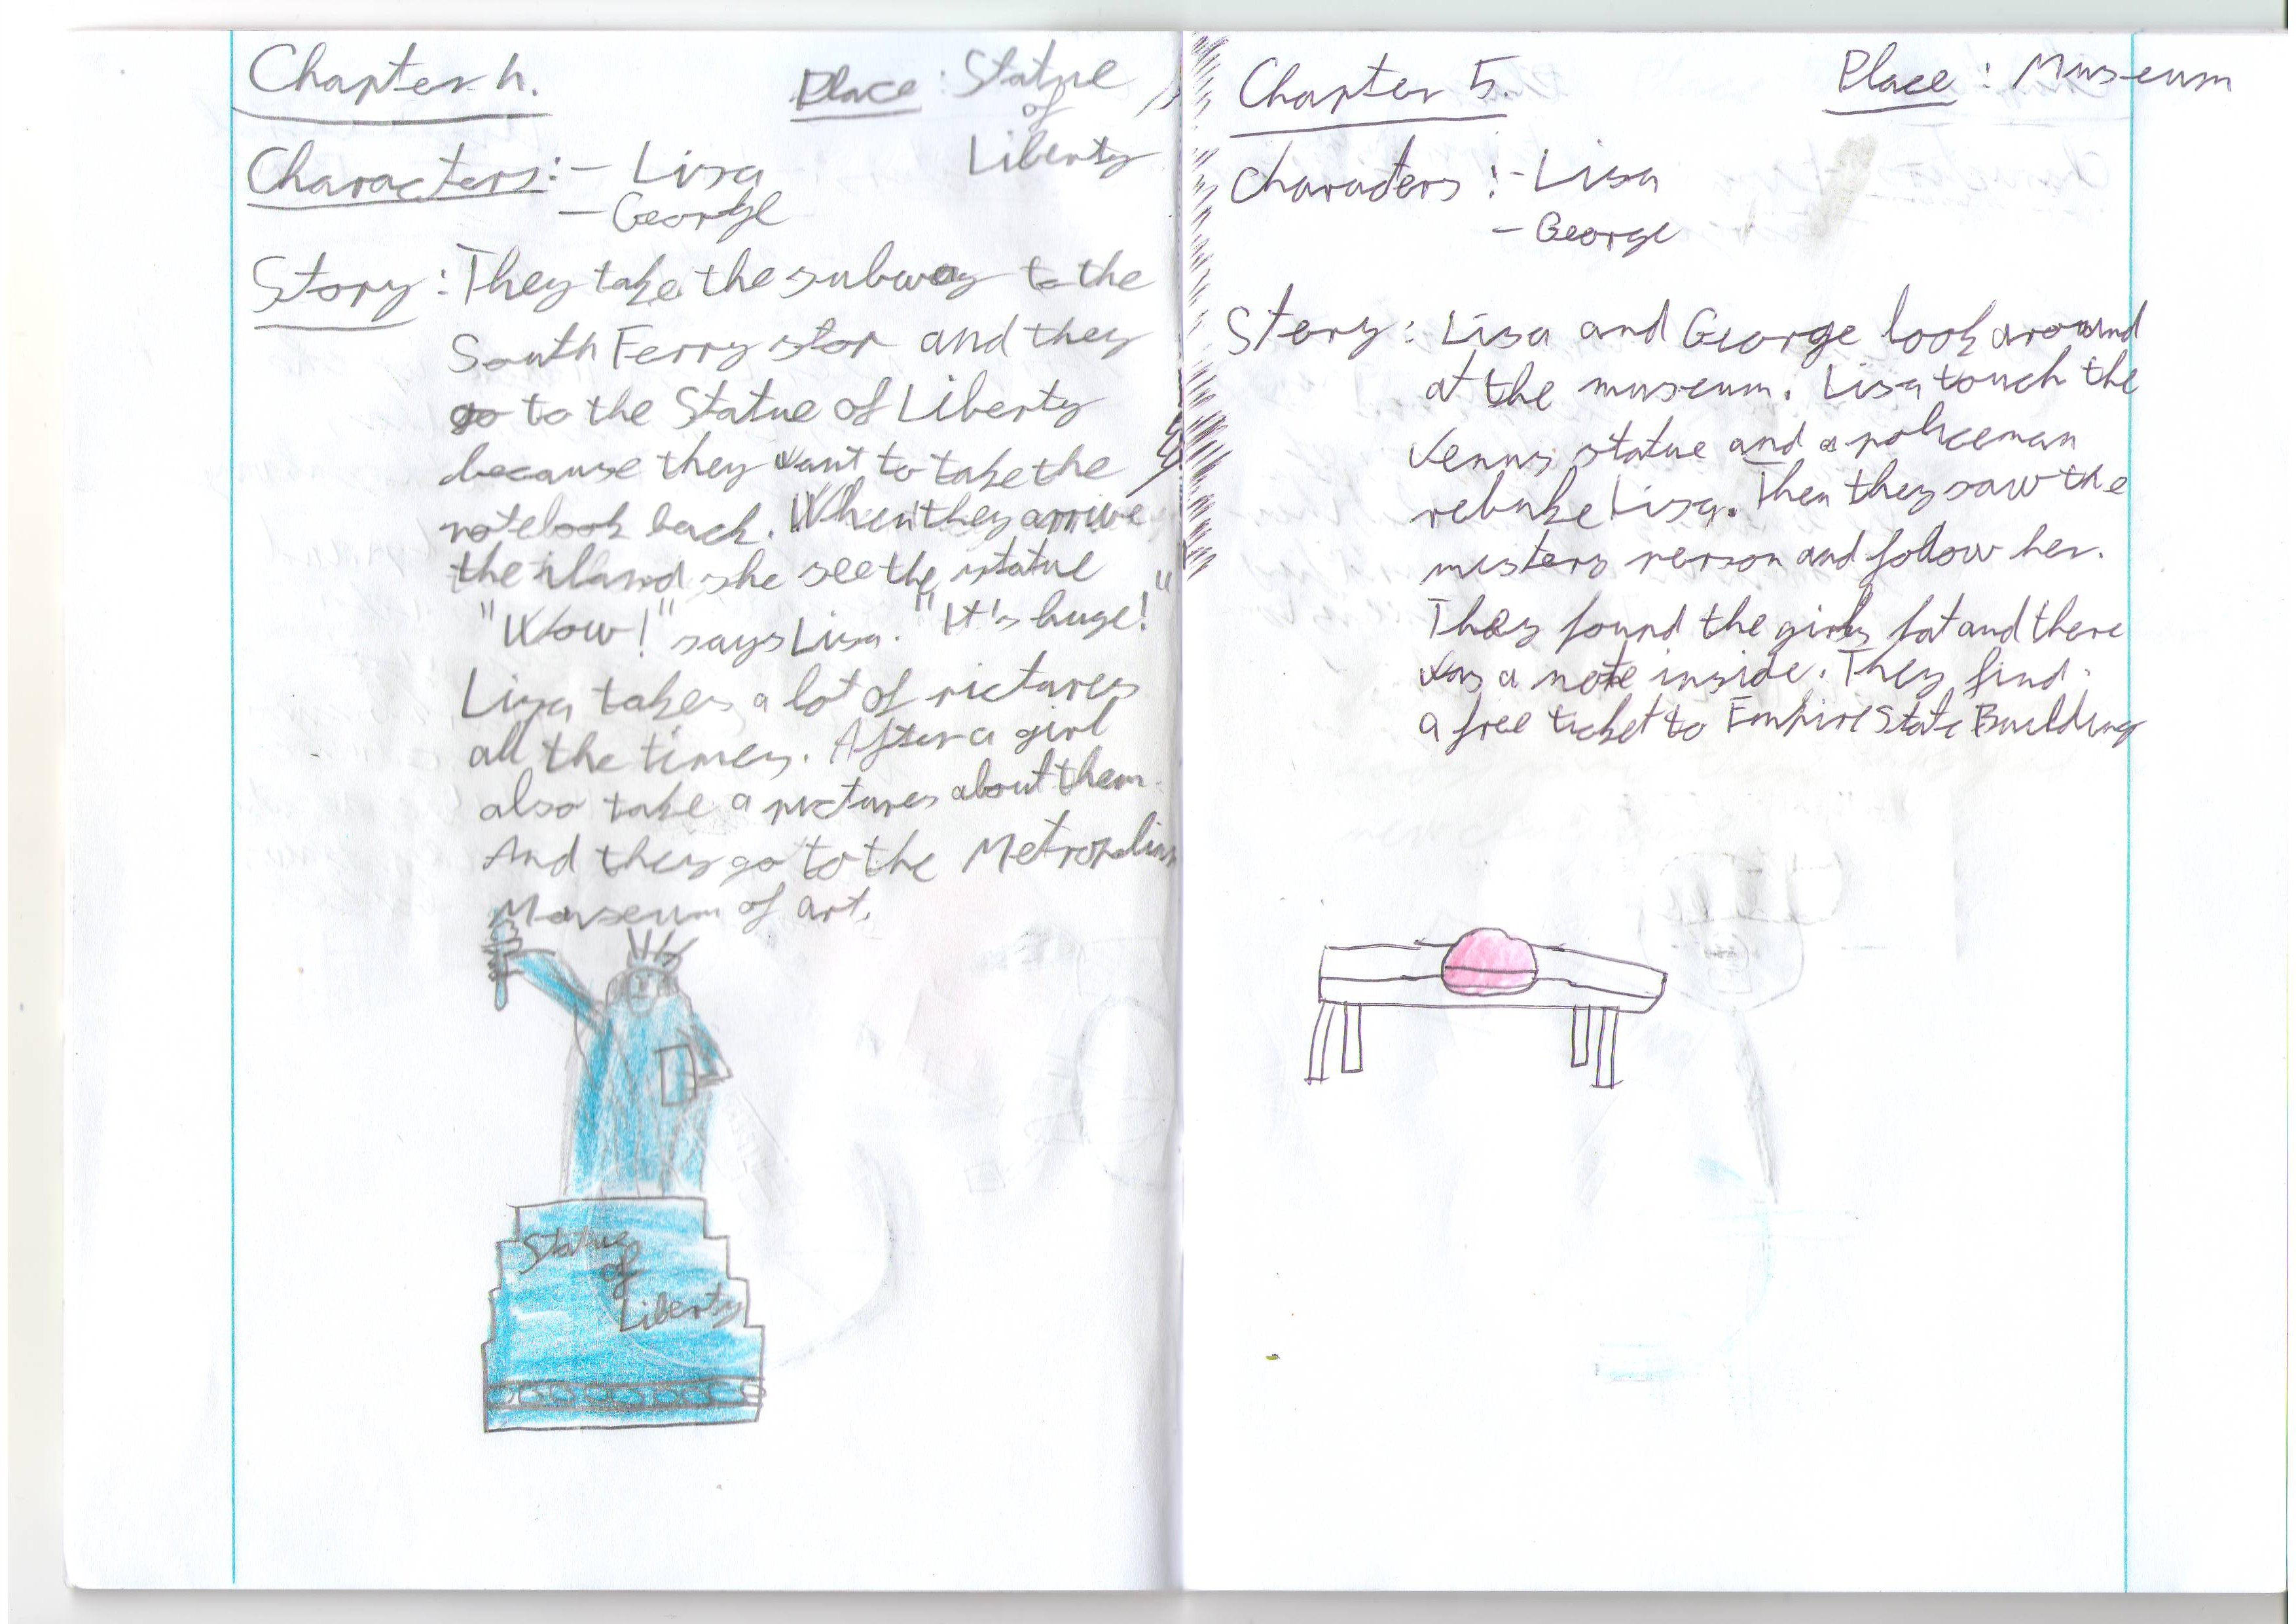 Chapter 4.
Place: Statue
of
Liberty
Characters: - Lisa
- George
Story: They take the subway to the
South Ferry stop and they
go to the Statue of Liberty
because they want to take the
notebook back. When they arrive
the island she see the statue
"Wow!" says Lisa. "It's huge!"
Lisa takes a lot of pictures
all the times. After a girl
also take a pictures about them.
And they go to the Metropolian
Museum of art.
Statue
of
Liberty
Chapter 5.
Place: Museum
Characters: - Lisa
- George
Story: Lisa and George look around
at the museum. Lisa touch the
Venus statue and a policeman
rebuke Lisa. Then they saw the
mistery person and follow her.
They found the girls hat and there
was a note inside. They find
a free ticket to Empire State Building